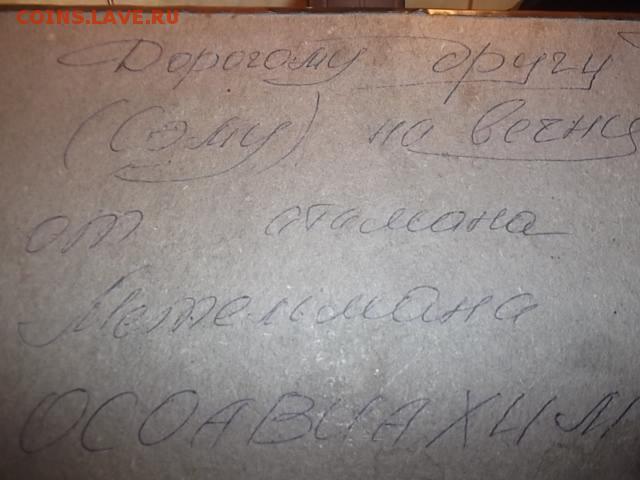 COINS.LAVE.RU
Дорогому другу
(Сэму) на вечну
от атамана
Метельмана
ОСОАВИАХИМ